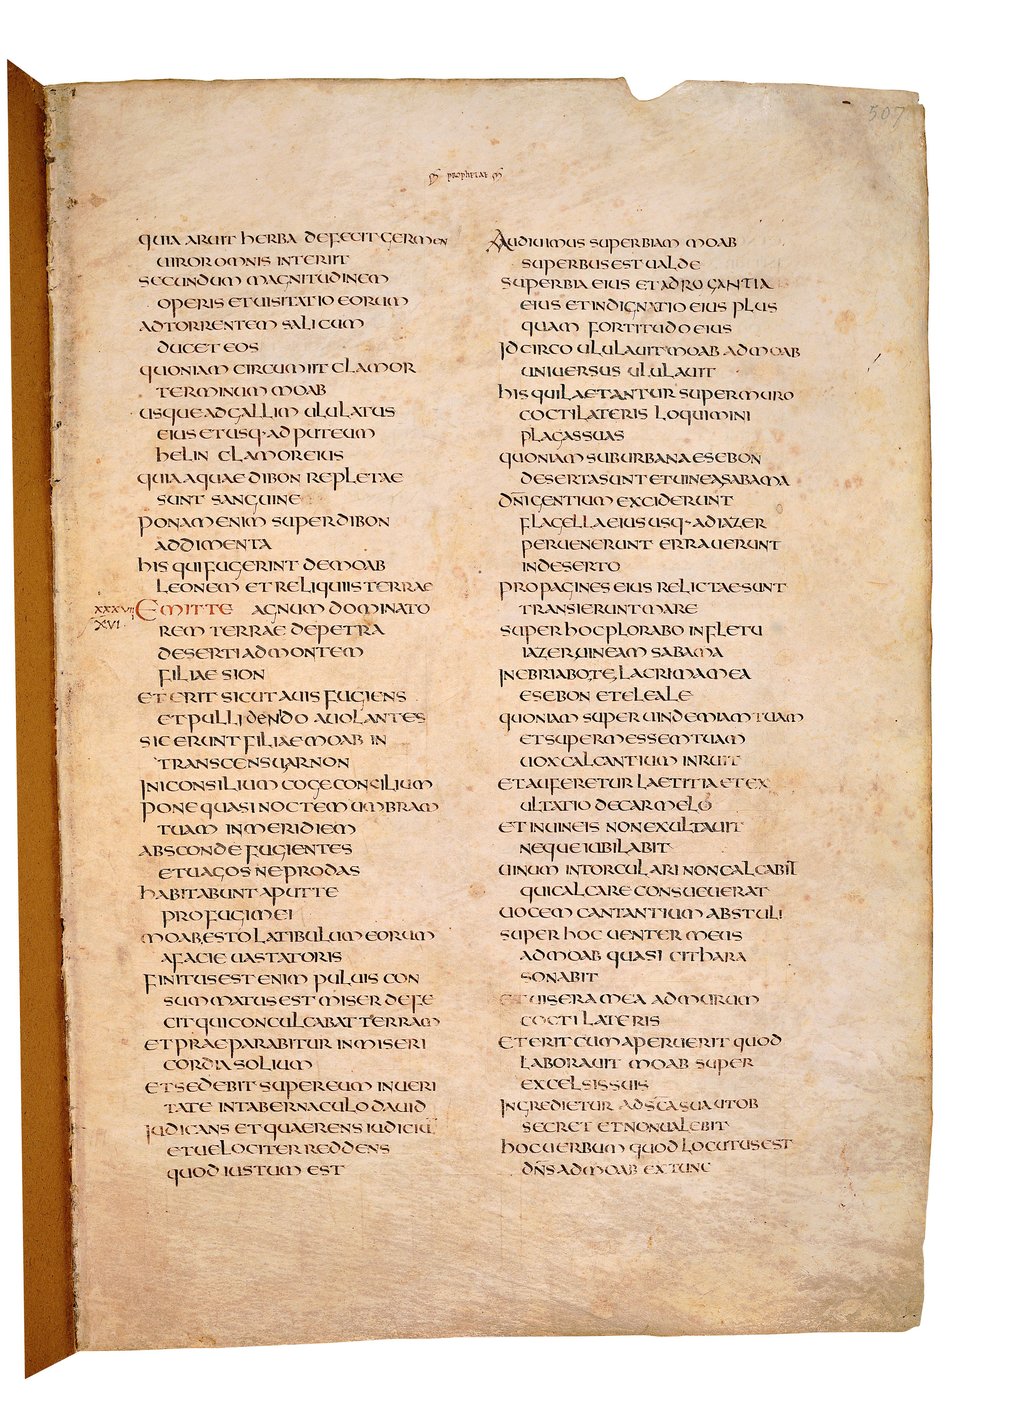 507
prophetae
quia aruit herba defecit germen
uiror omnis interiit
secundum magnitudinem
operis et uisitatio eorum
ad torrentem salicum
ducet eos
quoniam circumiit clamor
terminum moab
usque ad gallim ululatus
eius et usq· ad puteum
helin clamor eius
quia aquae dibon repletae
sunt sanguine
ponam enim super dibon
addimenta
his qui fugerint de moab
leonem et reliquiis terrae
xxxvii Emitte agnum dominato
xvi rem terrae de petra
deserti ad montem
filiae sion
et erit sicut auis fugiens
et pulli de nido auolantes
sic erunt filiae moab in
transcensu arnon
Ini consilium coge concilium
pone quasi noctem umbram
tuam in meridie
absconde fugientes
et uagos ne prodas
habitabunt aput te
profugi mei
moab esto latibulum eorum
a facie uastatoris
finitus est enim puluis con
summatus est miser defe
cit qui conculcabat terram
et praeparabitur in miseri
cordia solium
et sedebit super eum in ueri
tate in tabernaculo dauid
iudicans et quaerens iudiciu
et uelociter reddens
quod iustum est
Audiuimus superbiam moab
superbus est ualde
superbia eius et adrogantia
eius et indignatio eius plus
quam fortitudo eius
Idcirco ululauit moab ad moab
uniuersus ululauit
his qui laetantur super muro
cocti lateris loquimini
plagas suas
quoniam suburbana esebon
deserta sunt et uinea sabama
dn̄i gentium exciderunt
flagella eius usq· ad iazer
peruenerunt errauerunt
in deserto
propagines eius relictae sunt
transierunt mare
super hoc plorabo in fletu
iazer uineam sabama
Inebriabo te lacrima mea
esebon et eleale
quoniam super uindemiam tuam
et super messem tuam
uox calcantium inruit
et auferetur laetitia et ex
ultatio de carmelo
et in uineis non exultauit
neque iubilabit
uinum in torculari non calcabit
qui calcare consueuerat
uocem cantantium abstuli
super hoc uenter meus
ad moab quasi cithara
sonabit
et uisera mea ad murum
cocti lateris
et erit cum aperuerit quod
laborauit moab super
excelsis suis
Ingredietur ad sc̄a sua ut ob
secret et non ualebit
hoc uerbum quod locutus est
dn̄s ad moab ex tunc